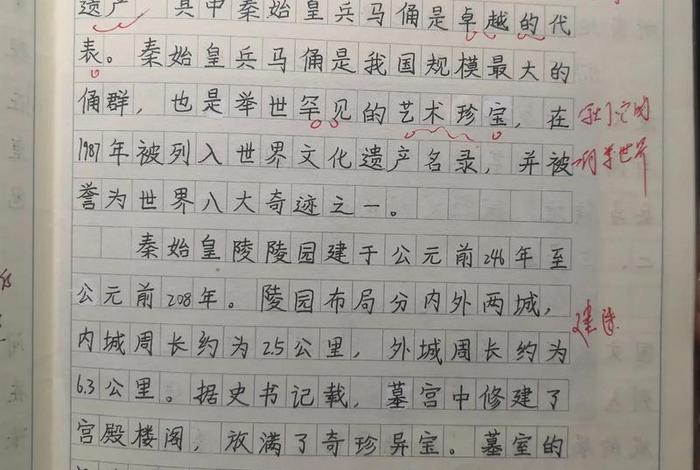 遗产，其中秦始皇兵马俑是卓越的代
表。秦始皇兵马俑是我国规模最大的
俑群，也是举世罕见的艺术珍宝，在
1987年被列入世界文化遗产名录，并被
誉为世界八大奇迹之一。
秦始皇陵陵园建于公元前246年至
公元前208年。陵园布局分内外两城，
内城周长约为2.5公里，外城周长约为
6.3公里。据史书记载，墓宫中修建了
宫殿楼阁，放满了奇珍异宝。墓室的